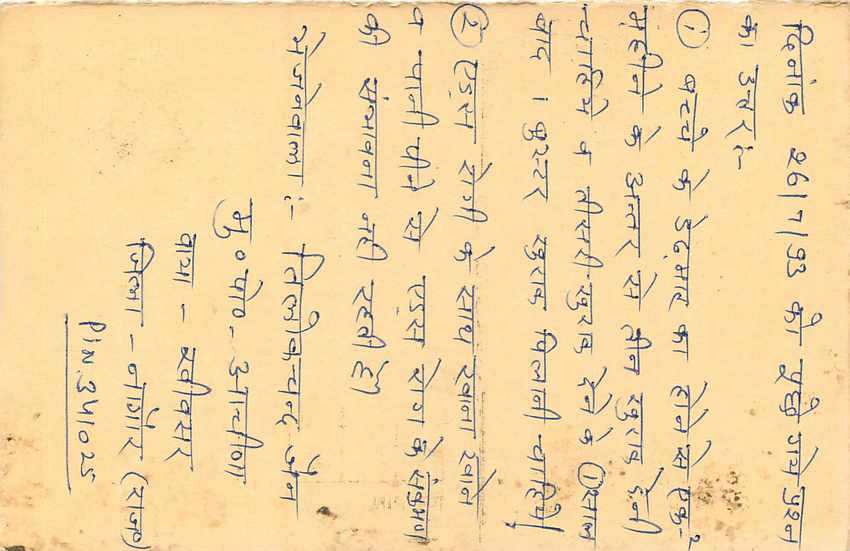 दिनांक 26/7/93 को पूछे गये प्रश्न
का उत्तर :-
① बच्चे के डेढ़ माह का होने से एक-२
महीने के अन्तर से तीन खुराक देनी
चाहिये व तीसरी खुराक देने के ① साल
बाद । बुस्टर खुराक पिलानी चाहिये।
② एड्स रोगी के साथ खाना खाने
व पानी पीने से एड्स रोग के संक्रमण
की संभावना नही रहती है।
भेजनेवाला :- त्तिलोकचन्द जैन
मु० पो०-
वाया - खींवसर
जिला - नागौर (राज०)
PIN. 341025